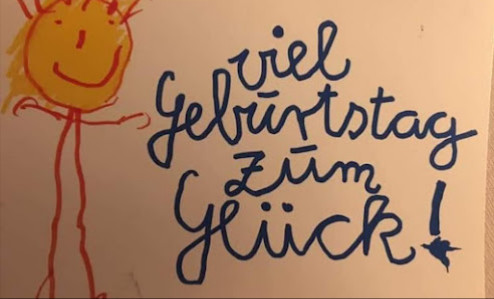 viel
Geburtstag
zum
Glück!